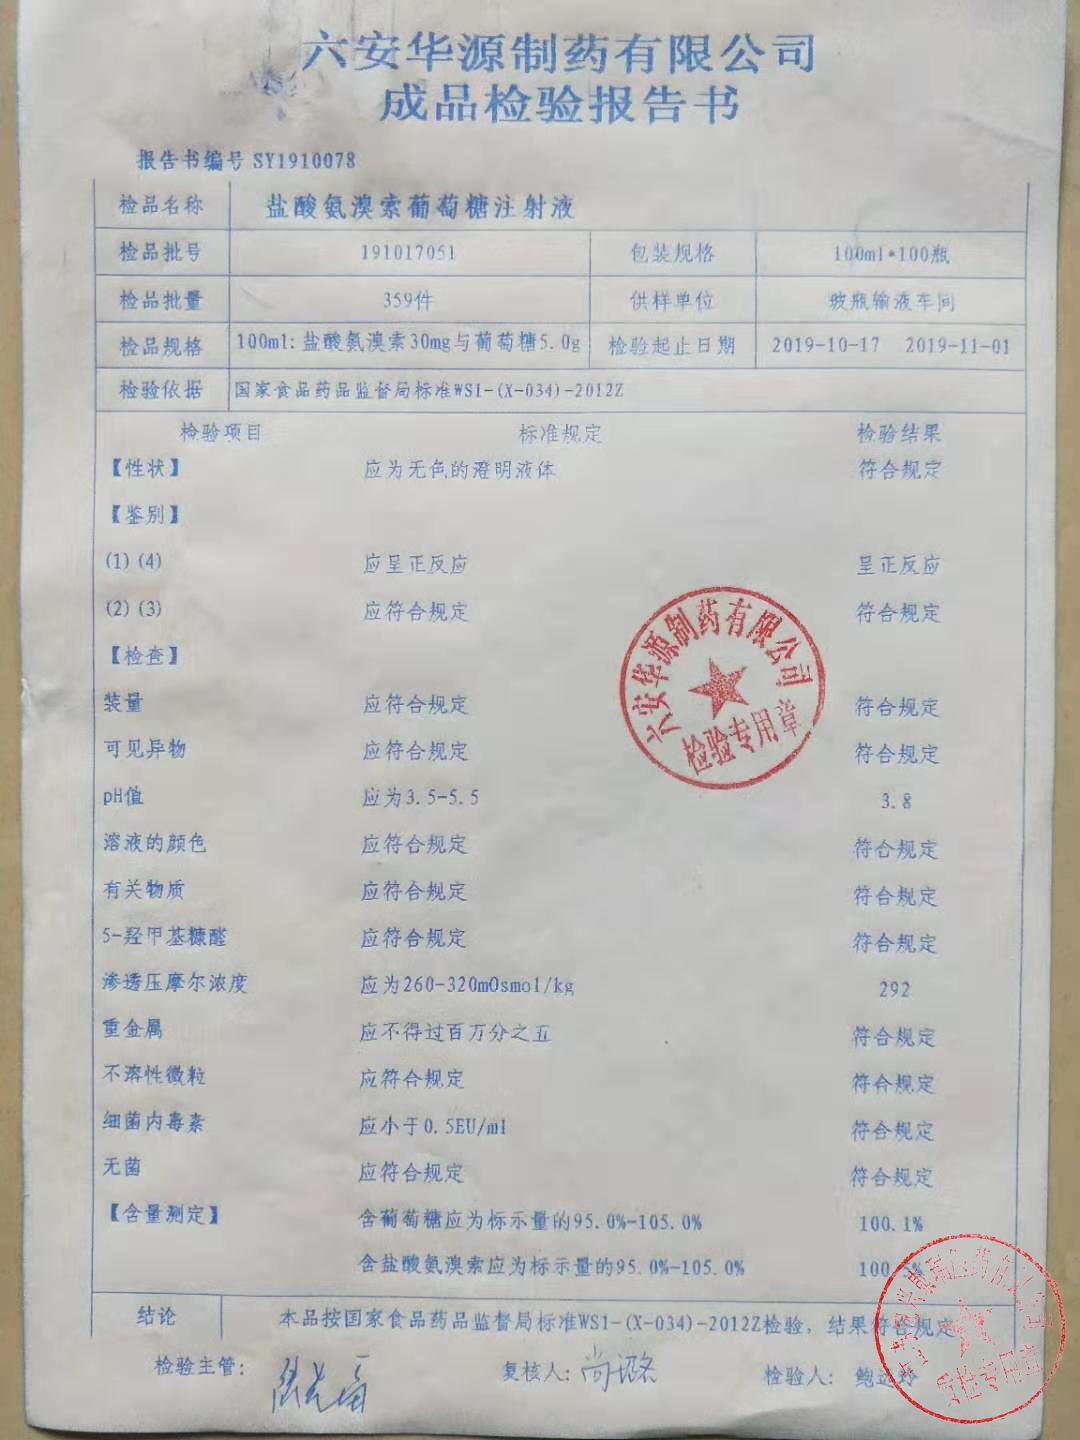 六安华源制药有限公司
成品检验报告书
报告书编号 SY1910078
检品名称 盐酸氨溴索葡萄糖注射液
检品批号 191017051 包装规格 100ml*100瓶
检品批量 359件 供样单位 玻瓶输液车间
检品规格 100ml: 盐酸氨溴索30mg与葡萄糖5.0g 检验起止日期 2019-10-17 2019-11-01
检验依据 国家食品药品监督局标准WS1-(X-034)-2012Z
检验项目 标准规定 检验结果
【性状】 应为无色的澄明液体 符合规定
【鉴别】
(1) (4) 应呈正反应 呈正反应
(2) (3) 应符合规定 符合规定
【检查】
装量 应符合规定 符合规定
可见异物 应符合规定 符合规定
pH值 应为3.5-5.5 3.8
溶液的颜色 应符合规定 符合规定
有关物质 应符合规定 符合规定
5-羟甲基糠醛 应符合规定 符合规定
渗透压摩尔浓度 应为260-320mOsmol/kg 292
重金属 应不得过百万分之五 符合规定
不溶性微粒 应符合规定 符合规定
细菌内毒素 应小于0.5EU/ml 符合规定
无菌 应符合规定 符合规定
【含量测定】 含葡萄糖应为标示量的95.0%-105.0% 100.1%
含盐酸氨溴索应为标示量的95.0%-105.0%
结论 本品按国家食品药品监督局标准WS1-(X-034)-2012Z检验, 结果符合规定
检验主管: 复核人: 尚璐 检验人:
六安华源制药有限公司
检验专用章
质检专用章